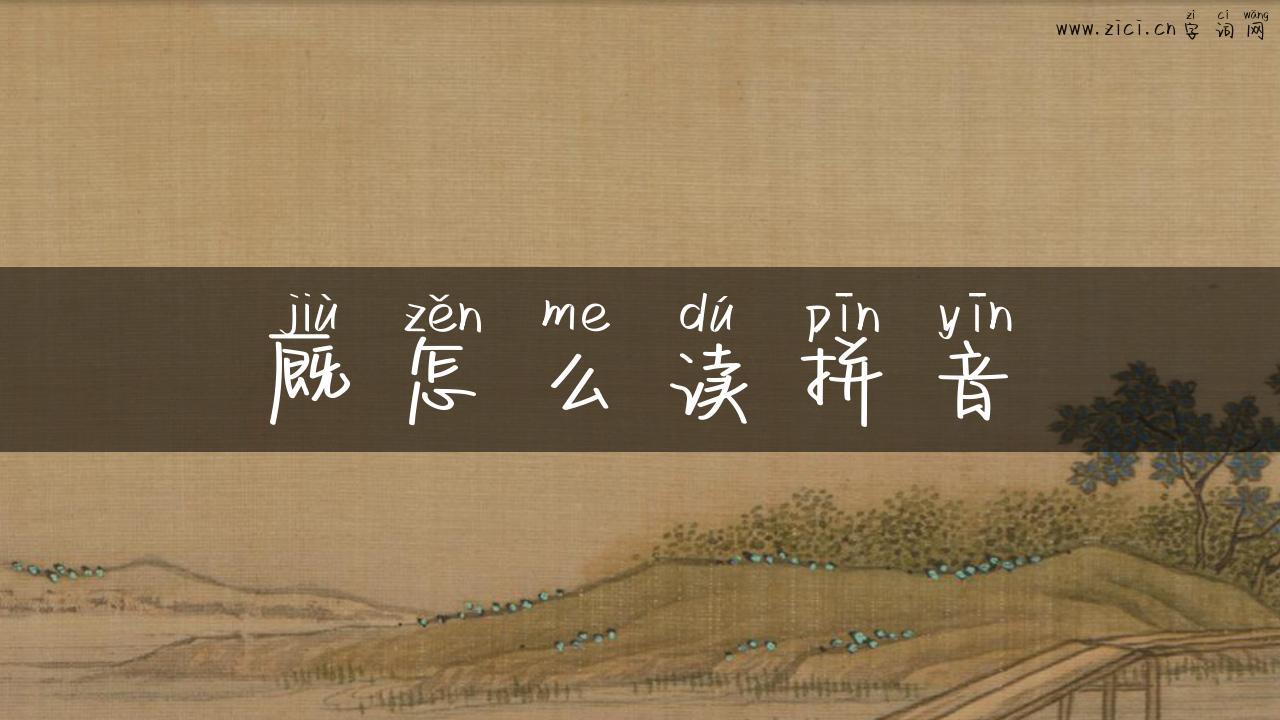 zì cí wǎng
www.zici.cn字词网
jiù zěn me dú pīn yīn
廐怎么读拼音